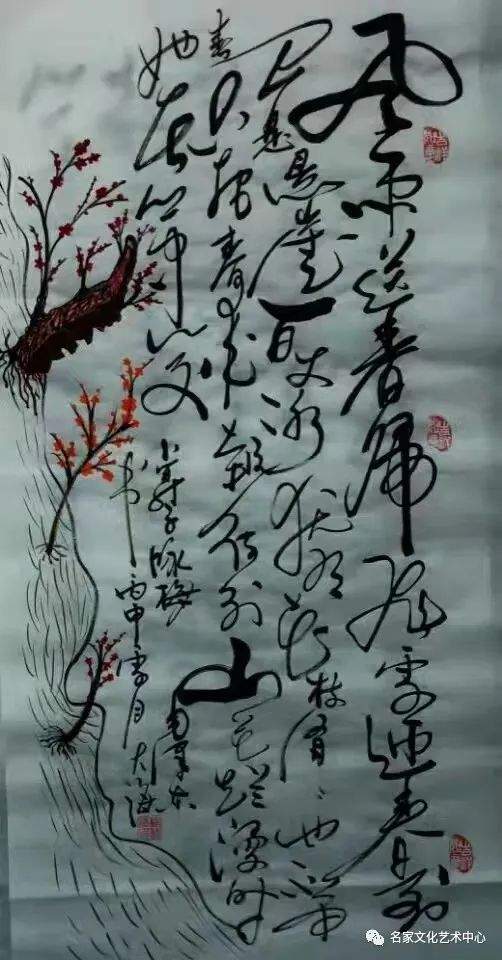 风雨送春归飞雪迎春到
已是悬崖百丈冰犹有花枝俏〻也不争
春只把春来报待到山花烂漫时
她在丛中笑
卜算子咏梅 毛泽东
书 丙申
名家文化艺术中心